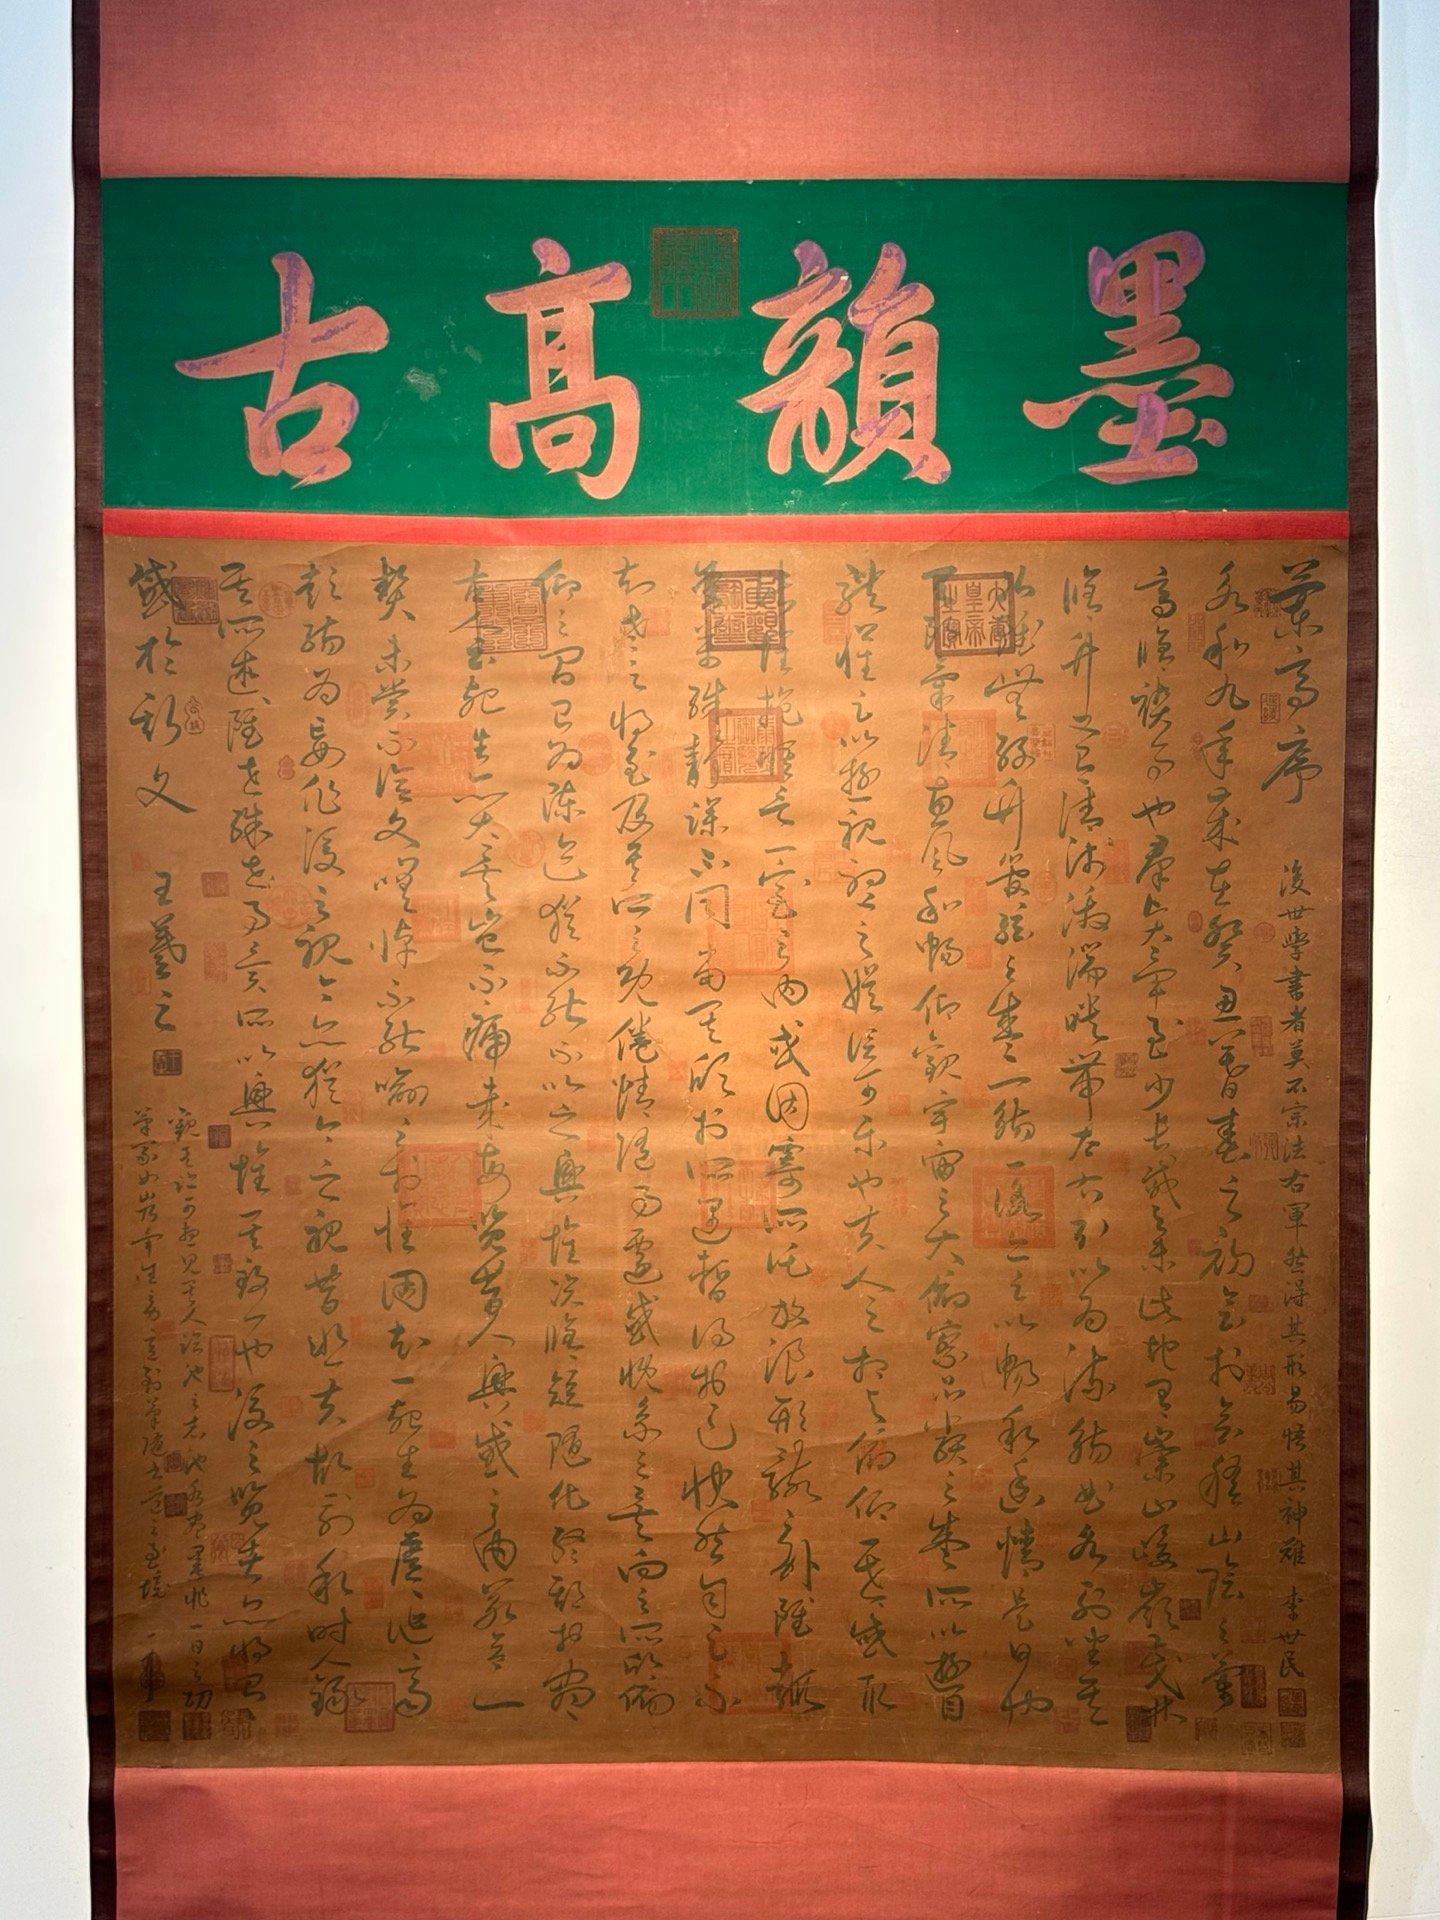 墨韻高古
蘭亭序
後世學書者莫不宗法右軍然得其形易悟其神難 李世民
永和九年歲在癸丑暮春之初會於會稽山陰之蘭
亭脩禊事也羣賢畢至少長咸集此地有崇山峻嶺茂林
脩竹又有清流激湍映帶左右引以為流觴曲水列坐其
次雖無絲竹管弦之盛一觴一詠亦足以暢敘幽情是日也
天朗氣清惠風和暢仰觀宇宙之大俯察品類之盛所以遊目
騁懷足以極視聽之娛信可樂也夫人之相與俯仰一世或取
諸懷抱悟言一室之內或因寄所託放浪形骸之外雖趣
舍萬殊靜躁不同當其欣於所遇暫得於己快然自足不
知老之將至及其所之既倦情隨事遷感慨係之矣向之所欣俯
仰之間已為陳迹猶不能不以之興懷況脩短隨化終期於盡
古人云死生亦大矣豈不痛哉每覽昔人興感之由若合一
契未嘗不臨文嗟悼不能喻之於懷固知一死生為虛誕齊
彭殤為妄作後之視今亦猶今之視昔悲夫故列敘時人錄
其所述雖世殊事異所以興懷其致一也後之覽者亦將有
感於斯文 王羲之
可想見其人臨池之志池水盡墨非一日之功